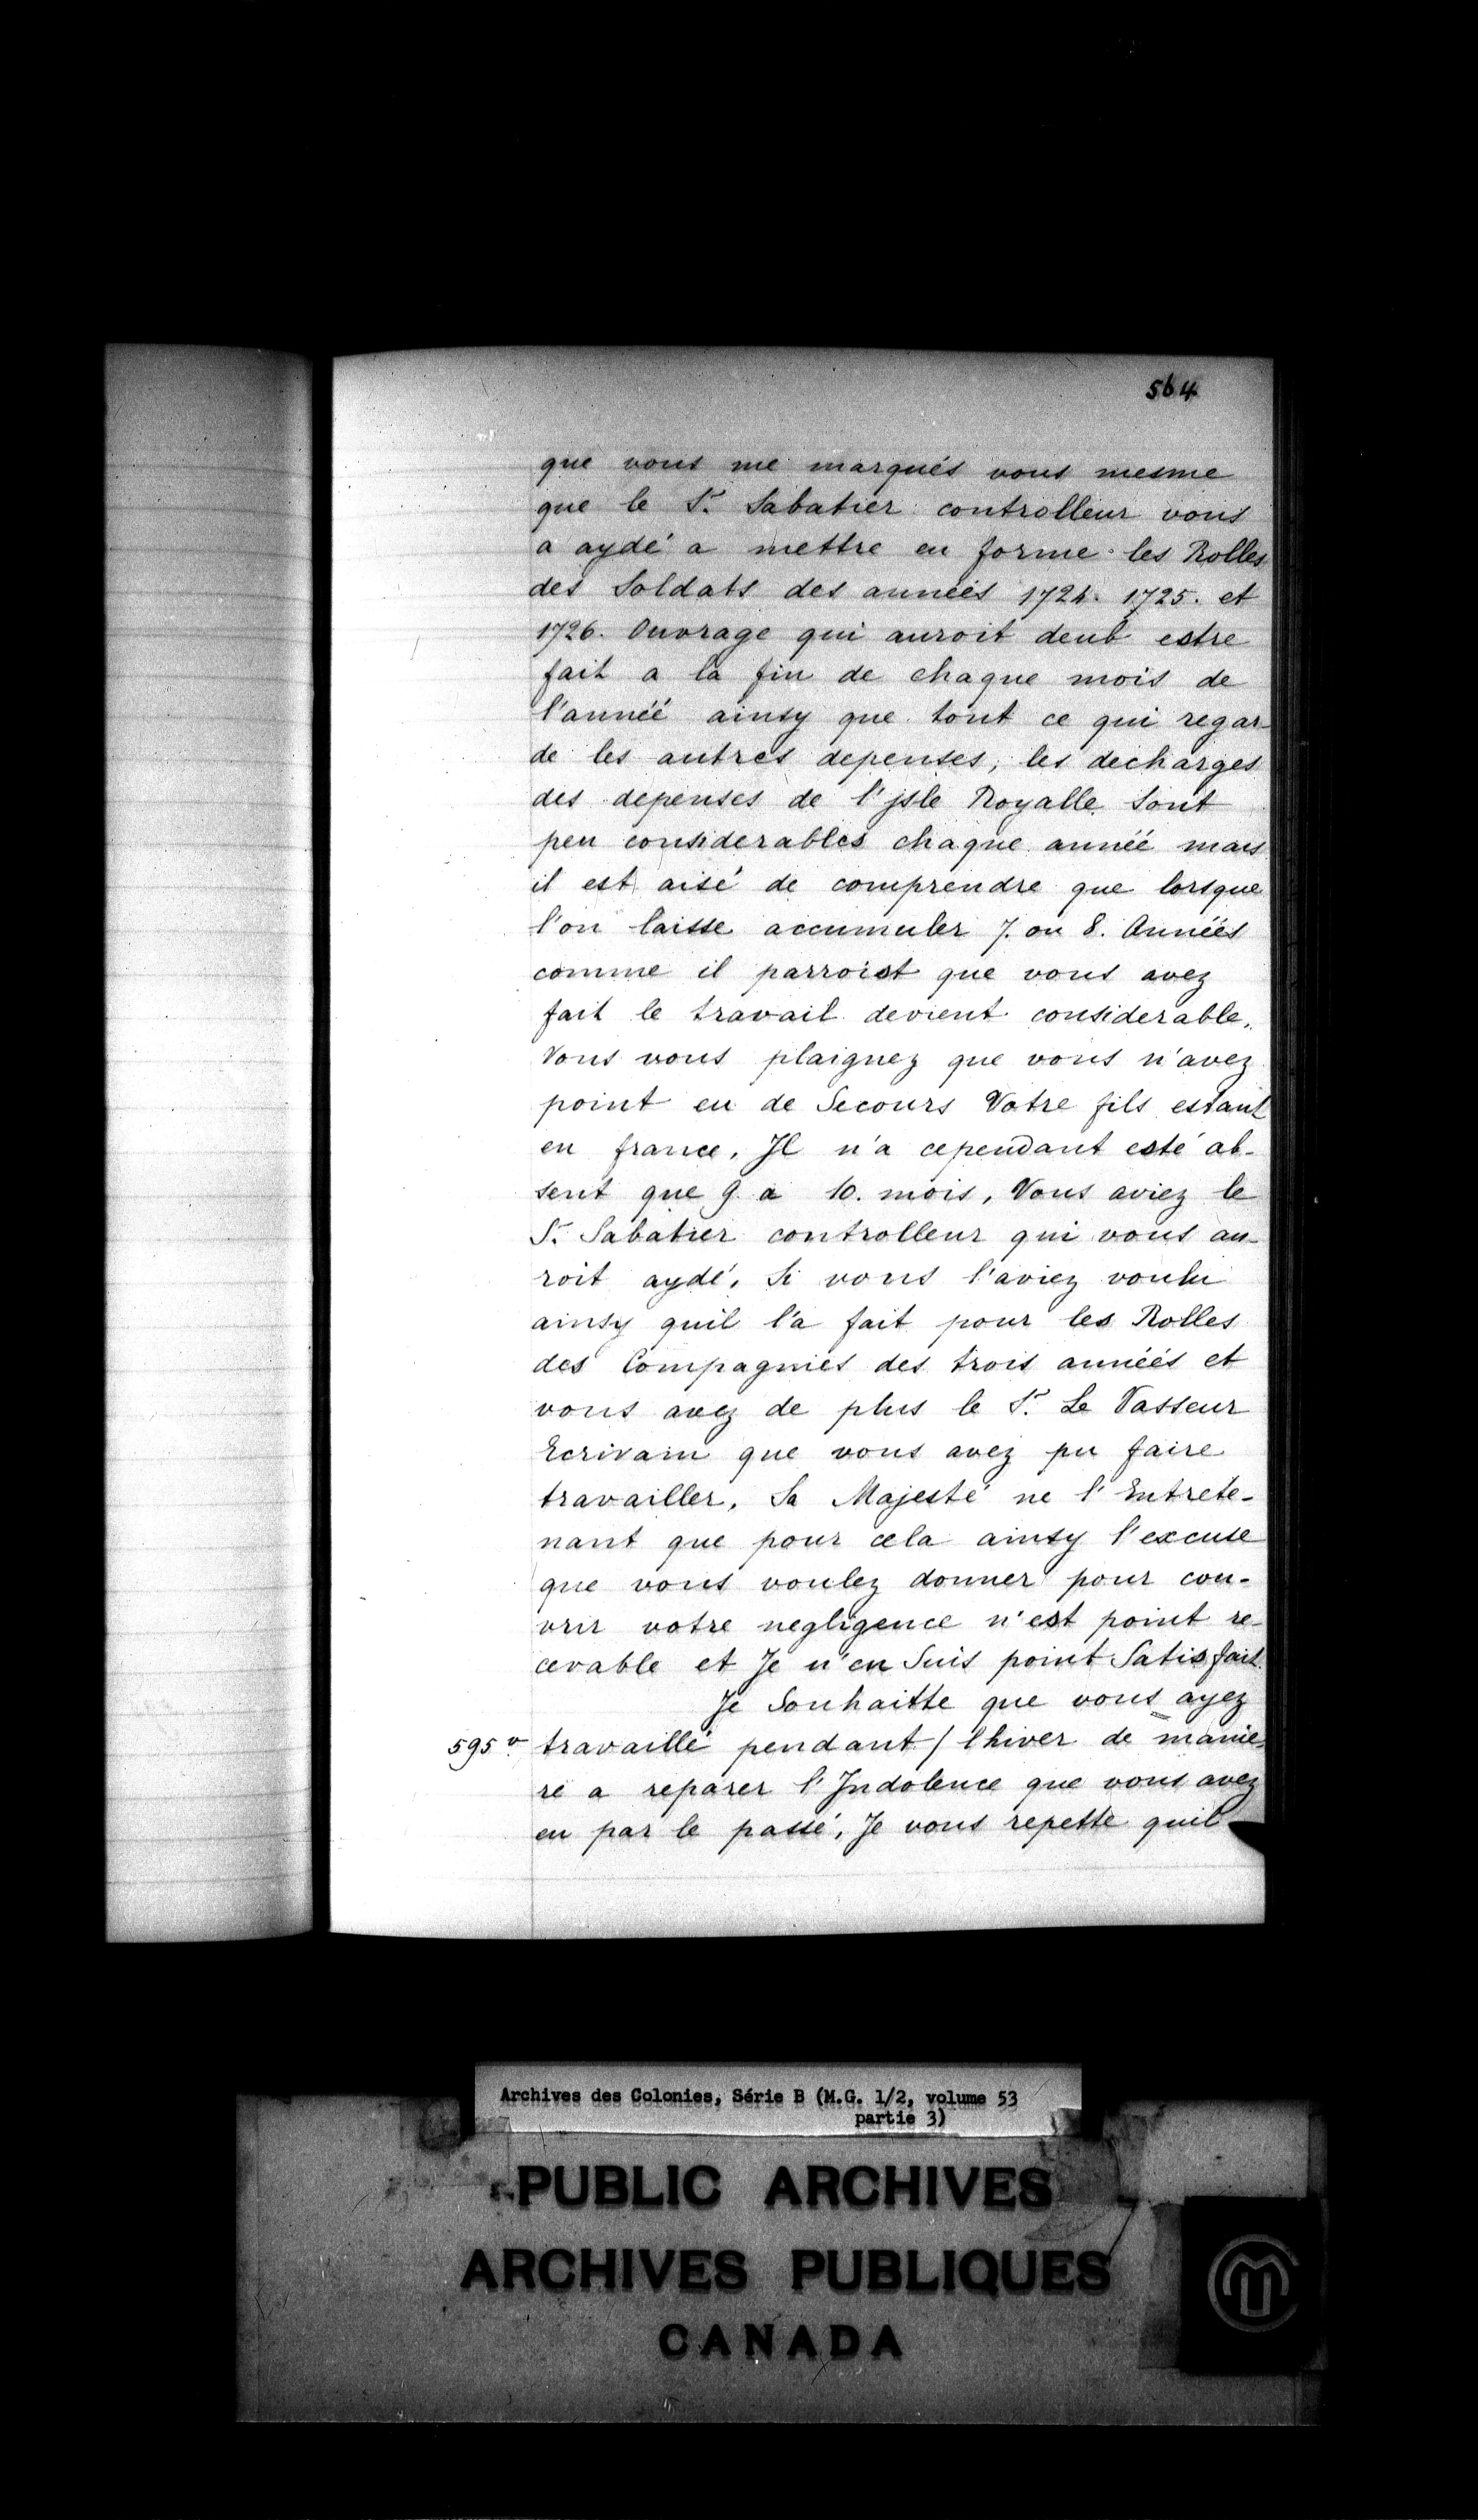 564
que vous me marqués vous mesme
que le Sr. Sabatier controlleur vous
a aydé a mettre en forme les Rolles
des Soldats des années 1724. 1725. et
1726. Ouvrage qui auroit deub estre
fait a la fin de chaque mois de
l'année ainsy que tout ce qui regar-
de les autres depenses, les decharges
des depenses de l'jsle Royalle sont
peu considerables chaque année mais
il est aisé de comprendre que lorsque
l'on laisse accumuler 7. ou 8. Années
comme il parroist que vous avez
fait le travail devient considerable.
Vous vous plaignez que vous n'avez
point eu de Secours Votre fils estant
en france, Il n'a cependant esté ab-
sent que 9 a 10. mois, Vous aviez le
Sr. Sabatier controlleur qui vous au-
roit aydé, Si vous l'aviez voulu
ainsy quil l'a fait pour les Rolles
des Compagnies des trois années et
vous avez de plus le Sr. Le Vasseur
Ecrivain que vous avez pu faire
travailler, Sa Majesté ne l'Entrete-
nant que pour cela ainsy l'excuse
que vous voulez donner pour cou-
vrir votre negligence n'est point re-
cevable et Je n'en Suis point Satisfait.
Je Souhaitte que vous ayez
595 v. travaillé pendant / lhiver de manie-
re a reparer l'Indolence que vous avez
eu par le passé, Je vous repette quil
Archives des Colonies, Série B (M.G. 1/2, volume 53
partie 3)
PUBLIC ARCHIVES
ARCHIVES PUBLIQUES
CANADA